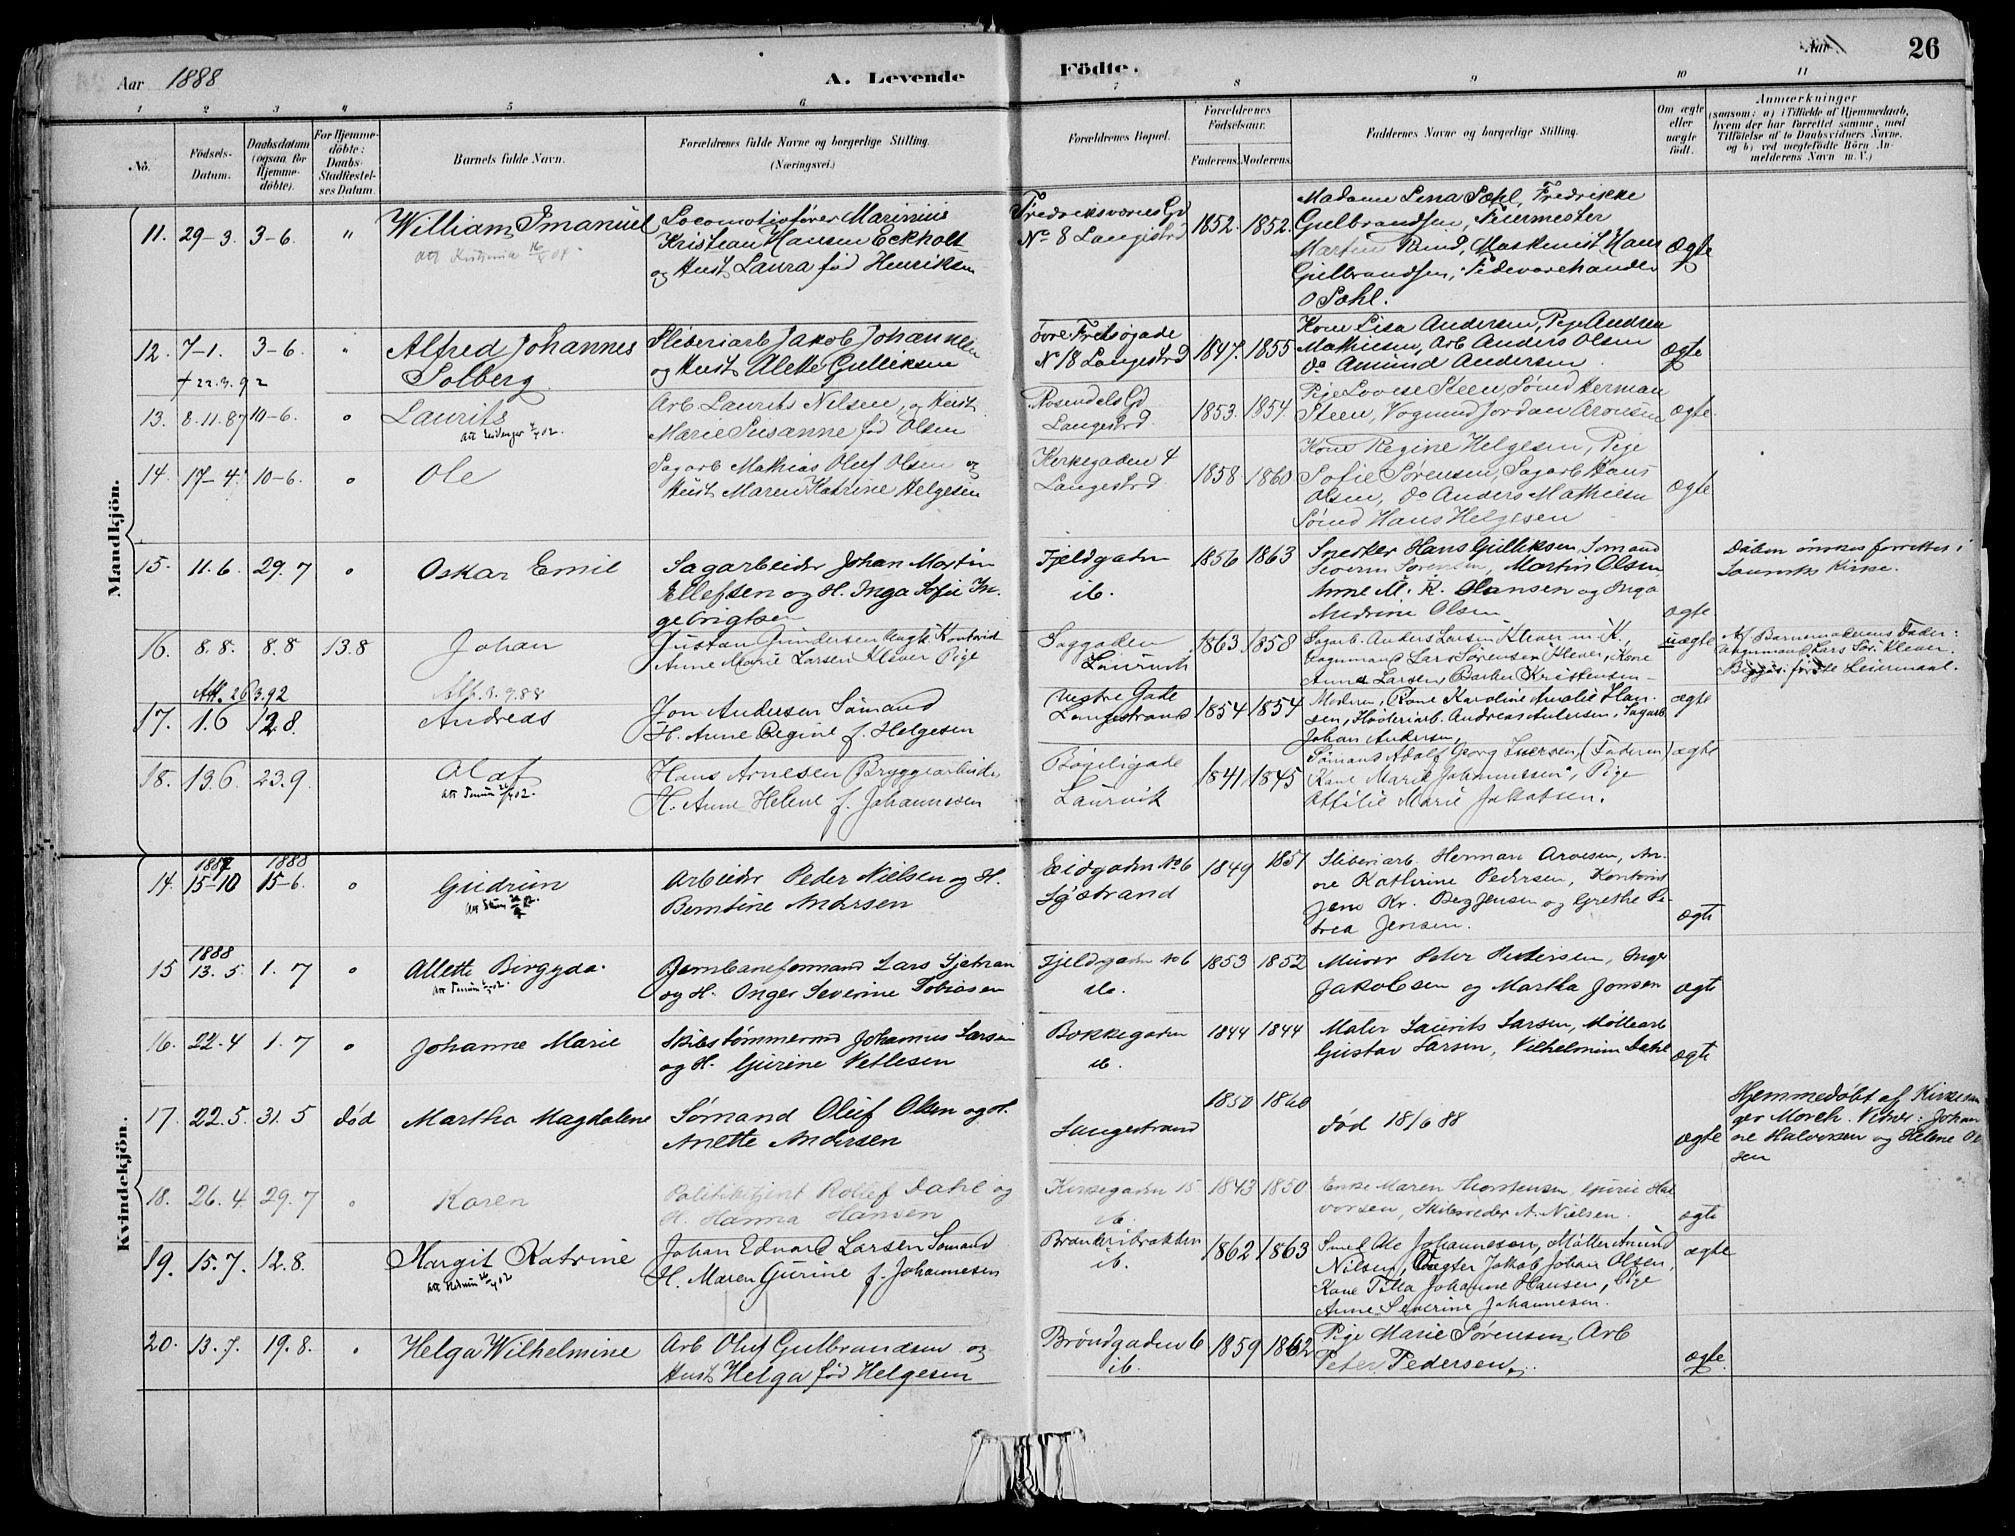 Aar 1888
A. Levende
Födte.
Aar
26
1 2 3 4 5 6 7 8 9 10 11
No.
Födsels-
Datum.
Daabsdatum
(ogsaa for
Hjemme-
döbte).
For Hjemme-
döbte:
Daabs-
Stadfæstel-
ses Datum.
Barnets fulde Navn.
Forældrenes fulde Navne og borgerlige Stilling.
(Næringsvei.)
Forældrenes Bopæl.
Forældrenes
Födselsaar.
Faderens.
Moderens.
Faddernes Navne og borgerlige Stilling.
Om ægte
eller
uægte
födt.
Anmærkninger
(saasom: a) i Tilfælde af Hjemmedaab,
hvem der har forrettet samme, med
Tilföielse af to Daabsvidners Navne.
og b) ved uægtefödte Börn An-
melderens Navn m. V.)
Mandkjön.
11. 29-3. 3-6. "
William Imanuel
Att Kristiania
Locomotivfører Marinius
Kristian Hansen Eckholt
og Hust Laura fød Henriksen
Fredriksværns Gd
No 8 Langestrd
1852. 1852.
Madame Lena Sæhl, Fredrikke
Gulbrandsen, Feiermester
Martin Rund, Maskinist Hans
Gulbrandsen, Fedevarehandler
O Sæhl.
Ægte
12. 7-1. 3-6. "
† 22.3.92
Alfred Johannes
Solberg
Sliberiarb Jakob Johannesen
og Hust Alette Gulliksen
øvre Fritsøgade
N 18 Langestrd
1847. 1855
Kone Lisa Andersen, Pige Andrea
Mathiesen, Arb Anders Olsen
do Amund Andersen
ægte
13. 8.11.87 10-6. "
Laurits
Arb Laurits Nilsen, og Hust
Marie Susanne fød Olsen
Rosendals Gd
Langestrd.
1853. 1854.
Pige Lovise Steen, Sømd Herman
Steen, Vognmd Jordan Aronsen
ægte
14. 17-4. 10-6. "
Ole
Sagarb Mathias Oluf Olsen og
Hust Maren Katrine Helgesen
Kirkegaden 4
Langestrd.
1858 1860
Kone Regine Helgesen, Pige
Sofie Sørensen, Sagarb Hans
Olsen, do Anders Mathiesn
Sømd Hans Helgesen
ægte
15. 11.6. 29.7 "
Oskar Emil
Sagarbeider Johan Martin
Ellefsen og H. Inga Sofie In-
gebrigtsen
Fjeldgaden
ib.
1856 1863
Snedker Hans Gulliksen, Sømand
Severin Sørensen, Martin Olsen,
Anne M. K. Hansen og Inga
Andrine Olsen
ægte
Daaben ønskes forrettet i
Laurviks Kirke.
16. 8.8. 8.8 13.8
Johan
Gustav Gundersen Ungk. Kontorist
Anne Marie Larsen Klever Pige
Saggaden
Laurvik
1863 1858
Sagarb. Anders Larsen Klever m K.,
Vognmand Lars Sørensen Klever, Kone
Anne Larsen, Barber Kristensen
uægte
Af Barnemoderens Fader:
Vognmand Lars Sør. Klever.
Begges første Leiermaal.
Att. 26/3.92
17. 1.6 12.8.
Att. 3.9.88
Andreas
Jon Andersen Sømand
H. Anne Regine f. Helgesen
Vestre Gade
Langestrand
1854 1854
Moderen, Kone Karoline Amalie Han-
sen, Høvleriarb. Andreas Andersen, Sagarb.
Johan Andersen,
ægte
18. 13.6 23.9.
Olaf
Hans Arnesen Bryggearbeider
H. Anne Helene f. Johannssen
Bøgeligade
Laurvik
1841. 1845
Sømand Adolf Georg Iversen, (Faderen)
Kone Marie Johannessen, Pige
Ottilie Marie Jakobsen.
ægte
Kvindekjön.
1887 1888
14. 15-10 15-6. "
Gudrun
Arbeider Peder Nielsen og H.
Berntine Andersen
Eidgaden No 6
Sjøstrand
1849 1851
Sliberiarb. Herman Arvesen, An-
ne Kathrine Pedersen, Kontorist
Jens Kr. Beg Jensen og Grethe Pe-
trea Jensen.
ægte
1888
15 13.5. 1.7 "
Allette Birgyda.
Jernbaneformand Lars Stjernan
og H. Inger Severine Tobiasen
Fjeldgaden No 6
ib.
1853 1852
Murer Peter Pedersen, Inger
Jakobsen og Martha Jonsen
ægte
16. 22.4 1.7 "
Johanne Marie
Skibstømmermd Johannes Larsen
og H. Gurine Vetlesen
Bøkkegaden
ib.
1844 1844
Maler Laurits Larsen, Møllearb
Gustav Larsen, Vilhelmine Dahl
ægte
17. 22.5. 31.5 død
Martha Magdalene
Sømand Oluf Olsen og H.
Anette Andersen
Langestrand
1850 1860
død 18/6 88
ægte
Hjemmedøbt af Kirkesan-
ger Morch. Vidner: Johan
ne Halvorsen og Helene Ol
sen
18. 26.4 29.7 "
Karen
Politibetjent Rollef Dahl og
H. Hanna Hansen
Kirkegaden 15
ib.
1843 1850
Enke Maren Thorstensen, Gurie Hal
vorsen, Skibsreder A. Nielsen.
ægte
19. 15.7. 12.8.
Margit Katrine
Johan Edvard Larsen Sømand
H. Maren Gurine f. Johannesen
Branteribakken
ib.
1862 1863
Smed Ole Johannesen, Møller Amund
Nilsen, Vagter Jakob Johan Olsen,
Kone Tilla Johanne Hansen, Pige
Anne Severine Johannesen.
ægte
20. 13.7. 19.8. "
Helga Wilhelmine
Arb Oluf Gulbrandsen og
Hust Helga fød Helgesen
Brøndgaden 6
ib.
1859 1862
Pige Marie Sørensen, Arb
Peter Pedersen
ægte